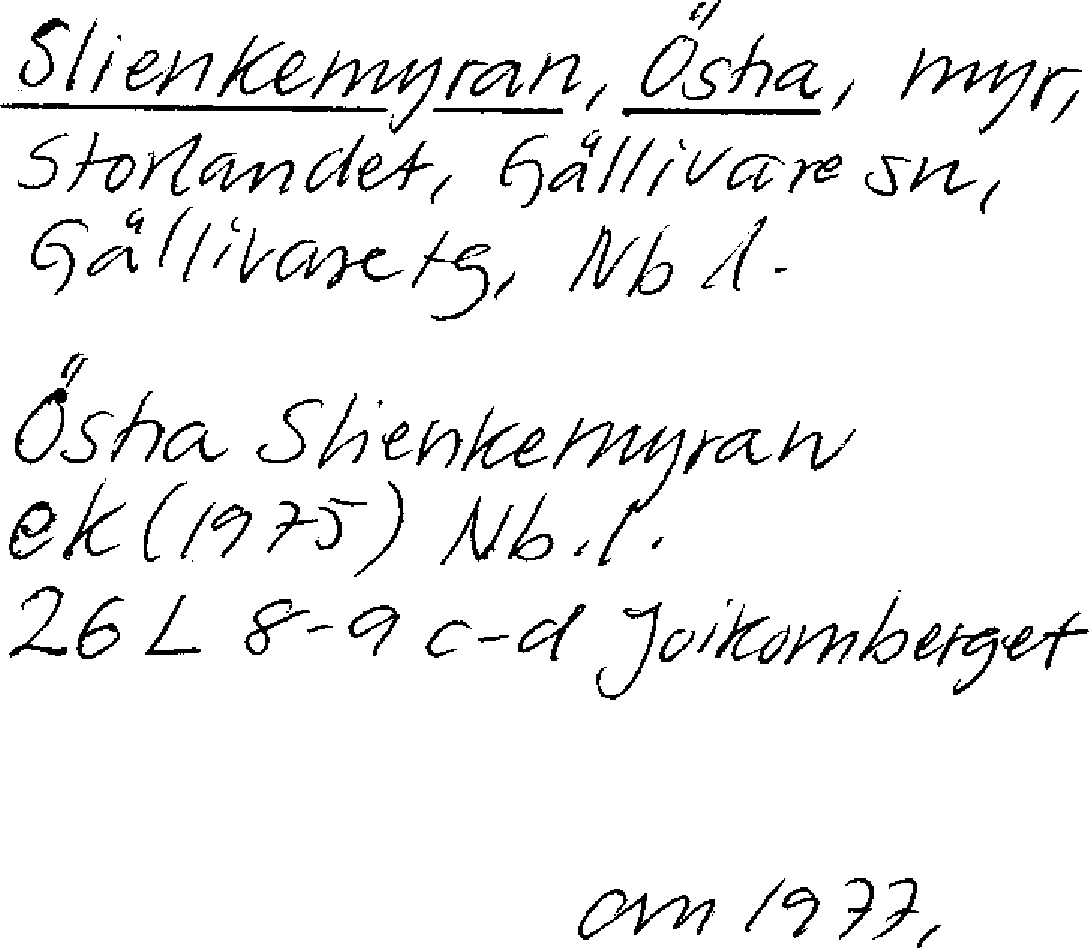 Slienkemyran, Östra, myr,
Storlandet, Gällivare sn,
Gällivare tg, Nb l.
Östra Slienkemyran
ek (1975) Nb.l.
26 L 8-9 c-d Joikomberget
am 1977,